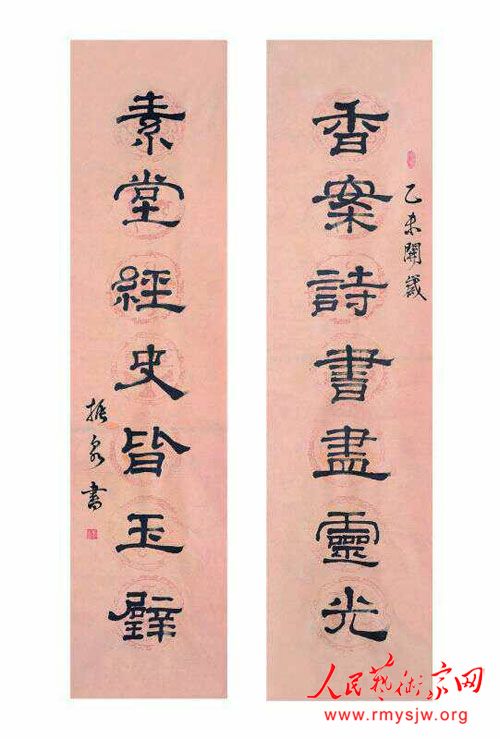 香案詩書盡靈光
乙未開歲
素堂經史皆玉壁
振泉書
人民藝術家网
www.rmysjw.org